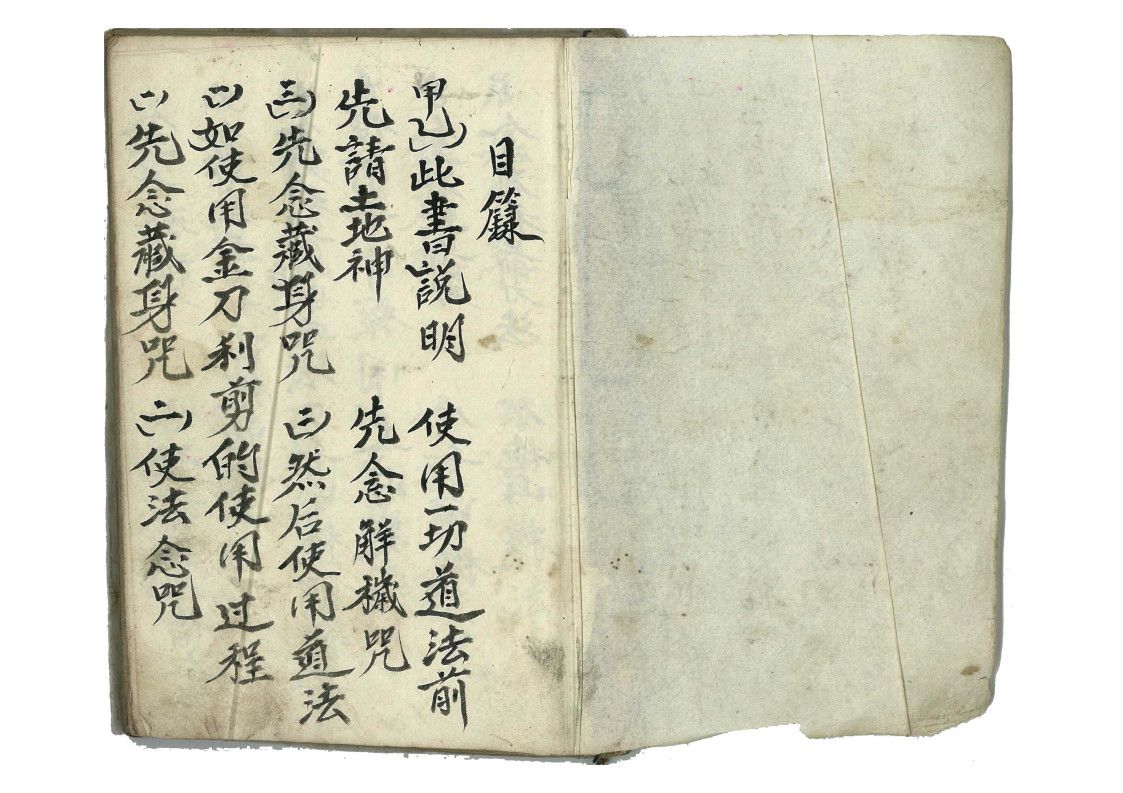 目籙
甲乙)此書説明 使用一切道法前
先請土地神 先念解穢咒
三)先念藏身咒 三)然后使用道法
一)如使用金刀利剪的使用过程
一)先念藏身咒 二)使法念咒